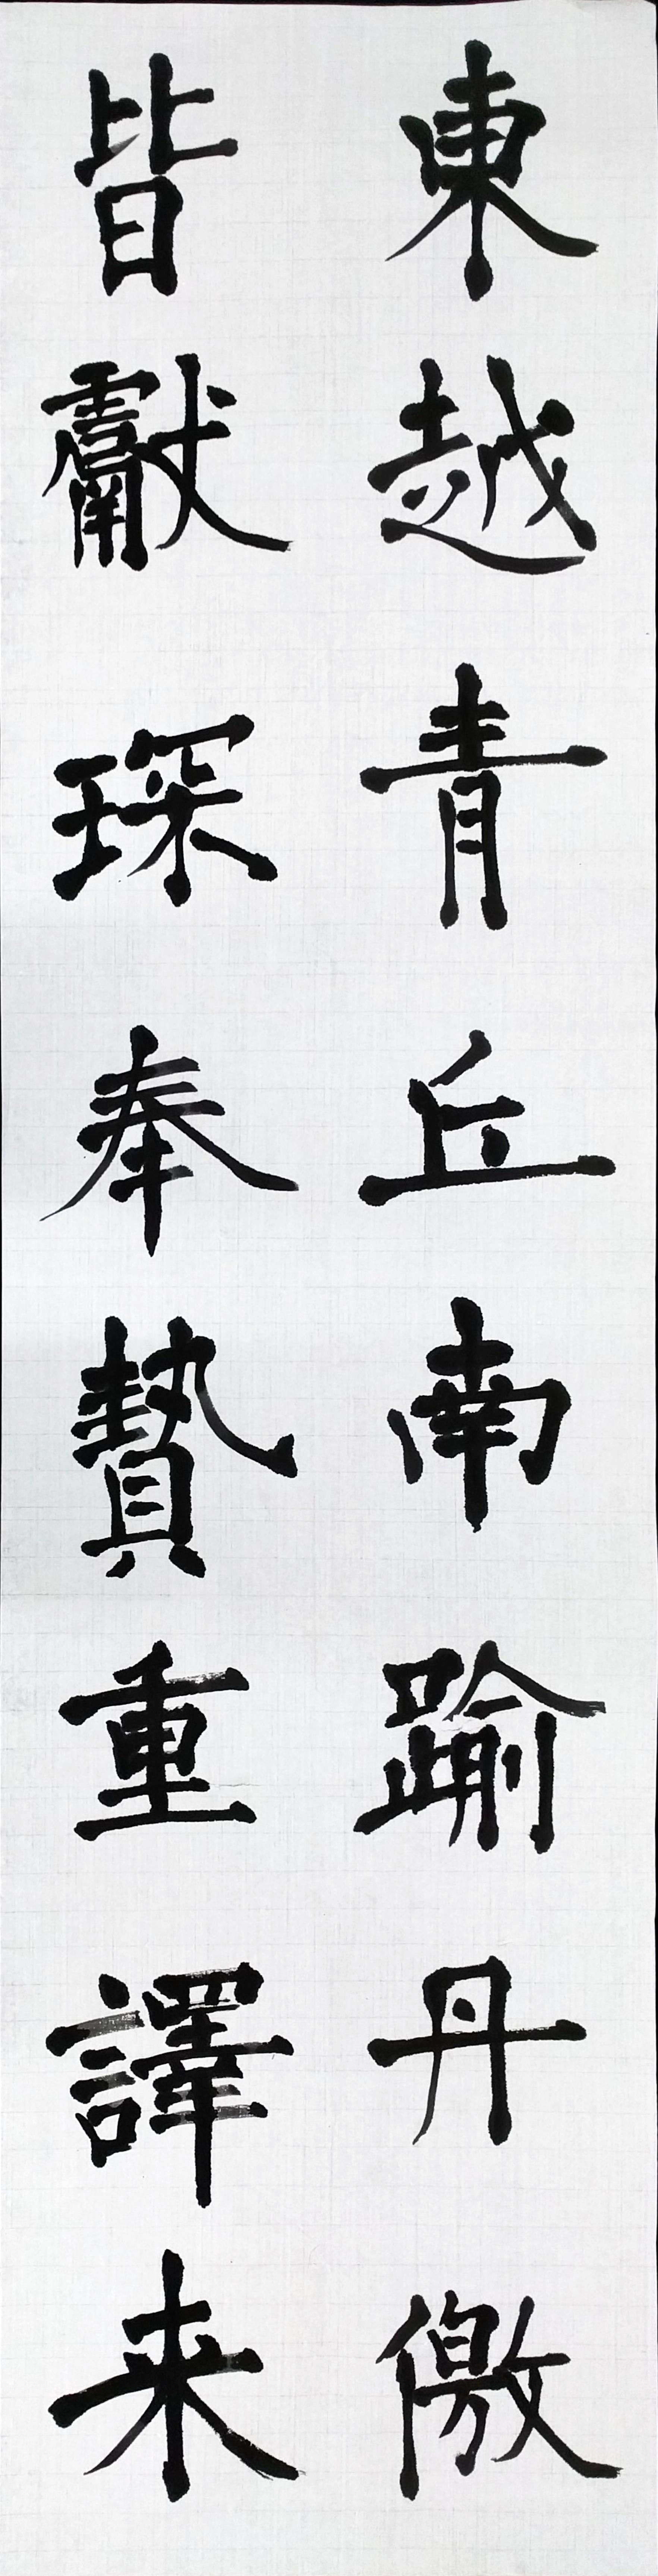 東越青丘南踰丹儌
皆獻琛奉贄重譯来